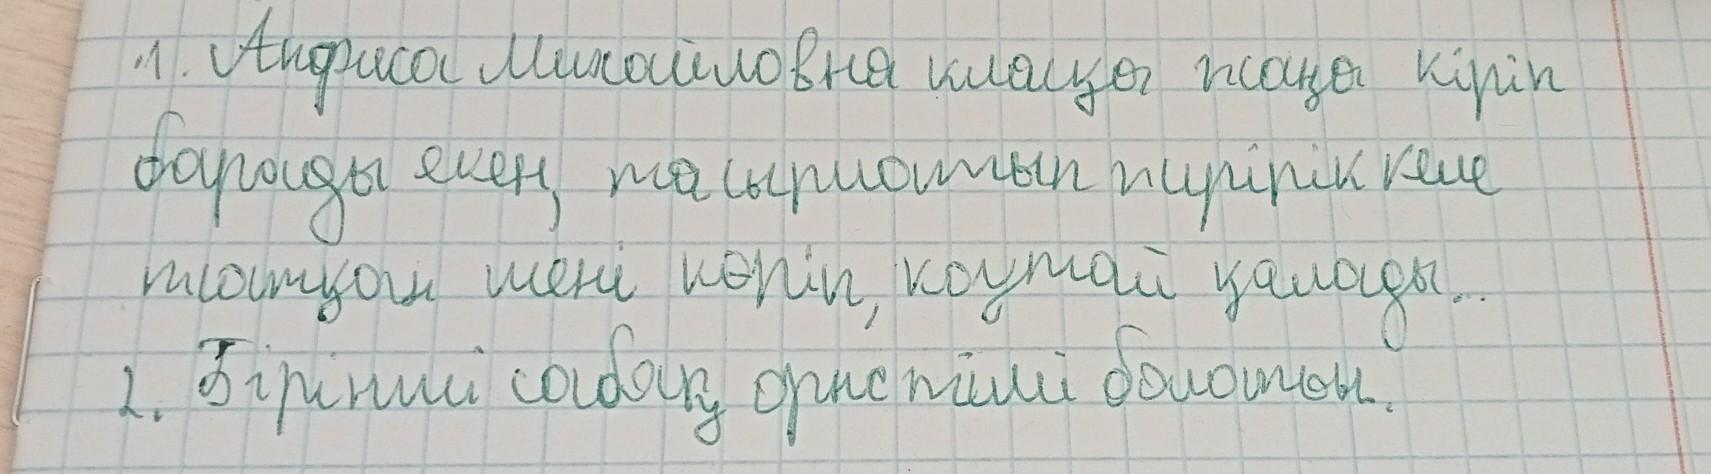 1. Анфиса Михайловна класқа жаңа кіріп
барады екен, тасырлатып жүгіріп келе
жатқан мені көріп, қоутай қалады...
2. Бірінші сабақ орыс тілі болатын.